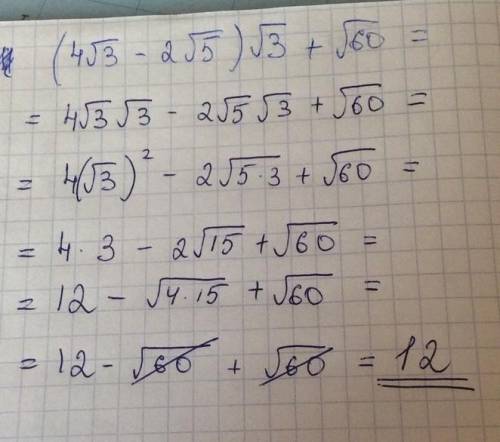 (4√3 - 2√5)√3 + √60 =
= 4√3√3 - 2√5√3 + √60 =
= 4(√3)² - 2√5·3 + √60 =
= 4·3 - 2√15 + √60 =
= 12 - √4·15 + √60 =
= 12 - √60 + √60 = 12